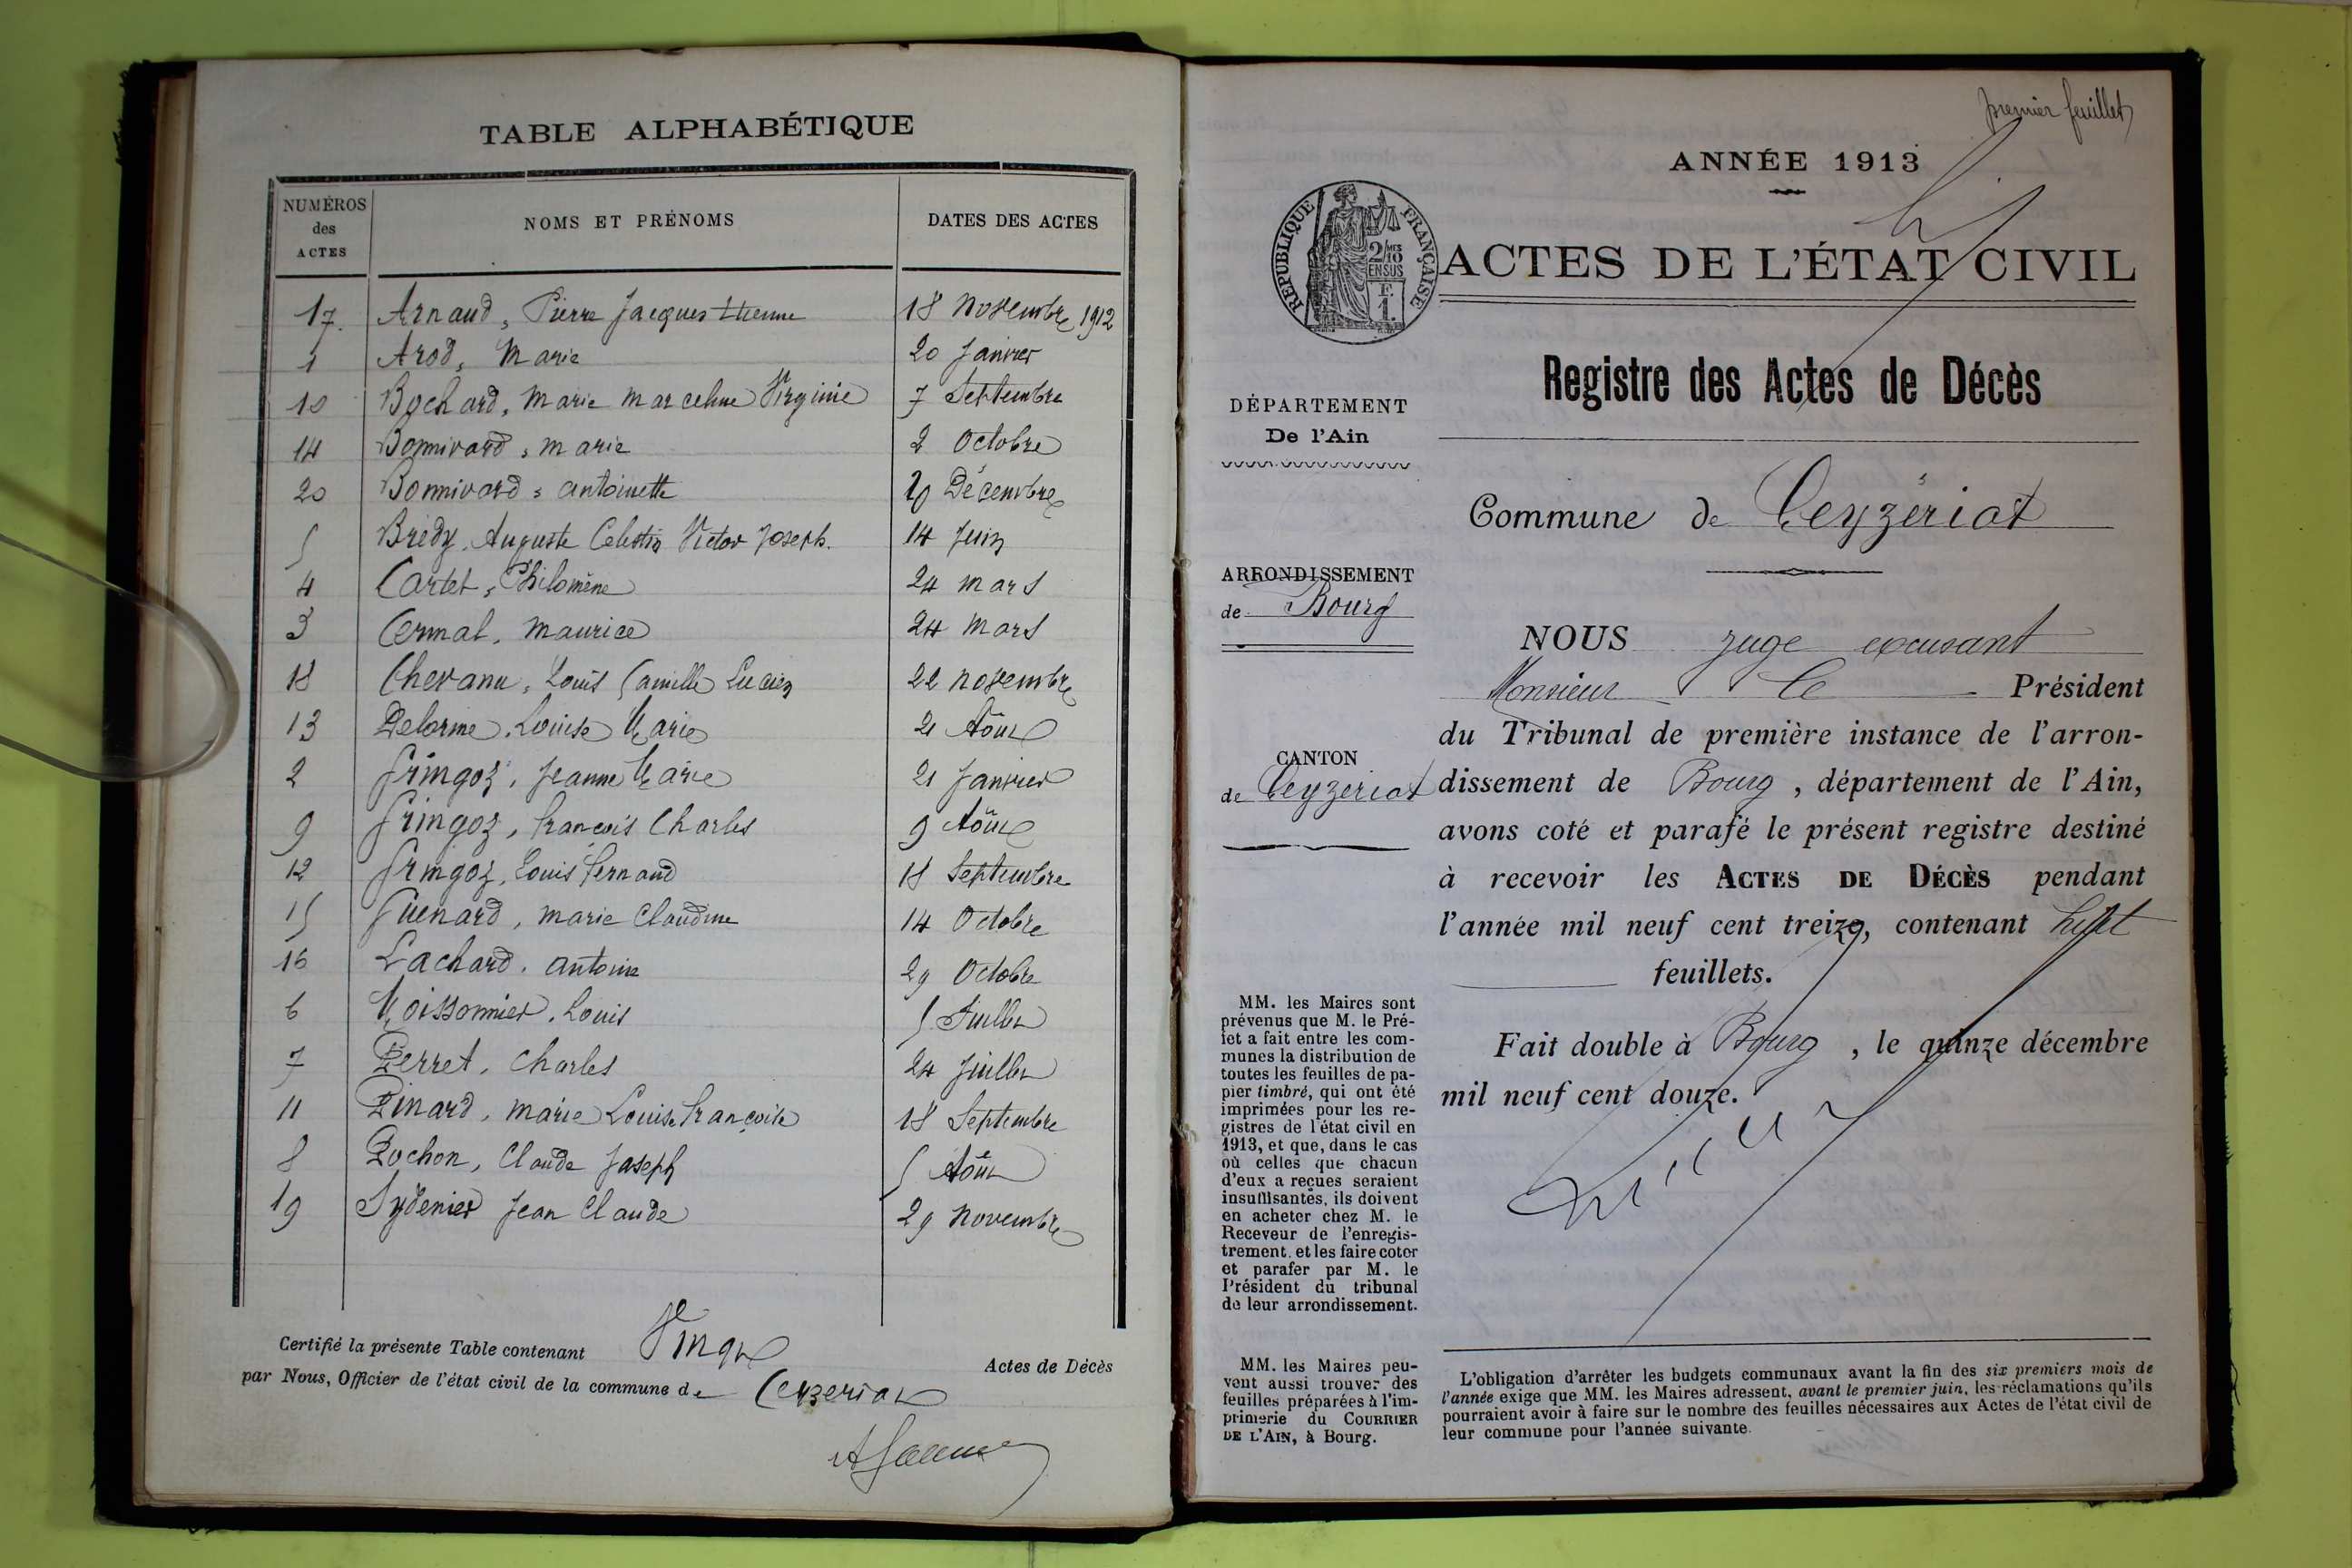 TABLE ALPHABÉTIQUE
NUMÉROS des ACTES NOMS ET PRÉNOMS DATES DES ACTES
17. Arnaud, Pierre Jacques Etienne 18 Novembre 1912
1 Arod, Marie 20 Janvier
10 Bochard, Marie Marceline Virginie 7 Septembre
14 Bonnivard, Marie 2 Octobre
20 Bonnivard, Antoinette 20 Décembre
5 Brédy, Auguste Celestin Victor Joseph. 14 Juin
4 Cartet, Philomène 24 Mars
3 Cermat, Maurice 24 Mars
18 Chevanu, Louis Camille Lucien 22 Novembre
13 Delorme, Louise Marie 21 Aôut
2 Gringoz, Jeanne Marie 21 Janvier
9 Gringoz, François Charles 9 Aôut
12 Gringoz, Louis Fernand 18 Septembre
15 Guenard, Marie Claudine 14 Octobre
16 Lachard, Antoine 29 Octobre
6 Moissonnier, Louis 5 Juillet
7 Perret, Charles 24 Juillet
11 Pinard, Marie Louise Françoise 18 Septembre
8 Pochon, Claude Joseph 5 Aôut
19 Sydenier Jean Claude 29 Novembre
Certifié la présente Table contenant Vingt Actes de Décès
par Nous, Officier de l'état civil de la commune de Ceyzeriat
premier feuillet
ANNÉE 1913
RÉPUBLIQUE FRANÇAISE
2/10 MES
EN SUS
F.
1.
ACTES DE L'ÉTAT CIVIL
Registre des Actes de Décès
DÉPARTEMENT
De l'Ain
Commune de Ceyzériat
ARRONDISSEMENT
de Bourg
CANTON
de Ceyzeriat
NOUS juge excusant
Monsieur le Président
du Tribunal de première instance de l'arron-
dissement de Bourg, département de l'Ain,
avons coté et parafé le présent registre destiné
à recevoir les ACTES DE DÉCÈS pendant
l'année mil neuf cent treize, contenant huit
feuillets.
Fait double à Bourg, le quinze décembre
mil neuf cent douze.
MM. les Maires sont
prévenus que M. le Pré-
fet a fait entre les com-
munes la distribution de
toutes les feuilles de pa-
pier timbré, qui ont été
imprimées pour les re-
gistres de l'état civil en
1913, et que, dans le cas
où celles que chacun
d'eux a reçues seraient
insuffisantes, ils doivent
en acheter chez M. le
Receveur de l'enregis-
trement, et les faire coter
et parafer par M. le
Président du tribunal
de leur arrondissement.
MM. les Maires peu-
vent aussi trouver des
feuilles préparées à l'im-
primerie du COURRIER
DE L'AIN, à Bourg.
L'obligation d'arrêter les budgets communaux avant la fin des six premiers mois de
l'année exige que MM. les Maires adressent, avant le premier juin, les réclamations qu'ils
pourraient avoir à faire sur le nombre des feuilles nécessaires aux Actes de l'état civil de
leur commune pour l'année suivante.